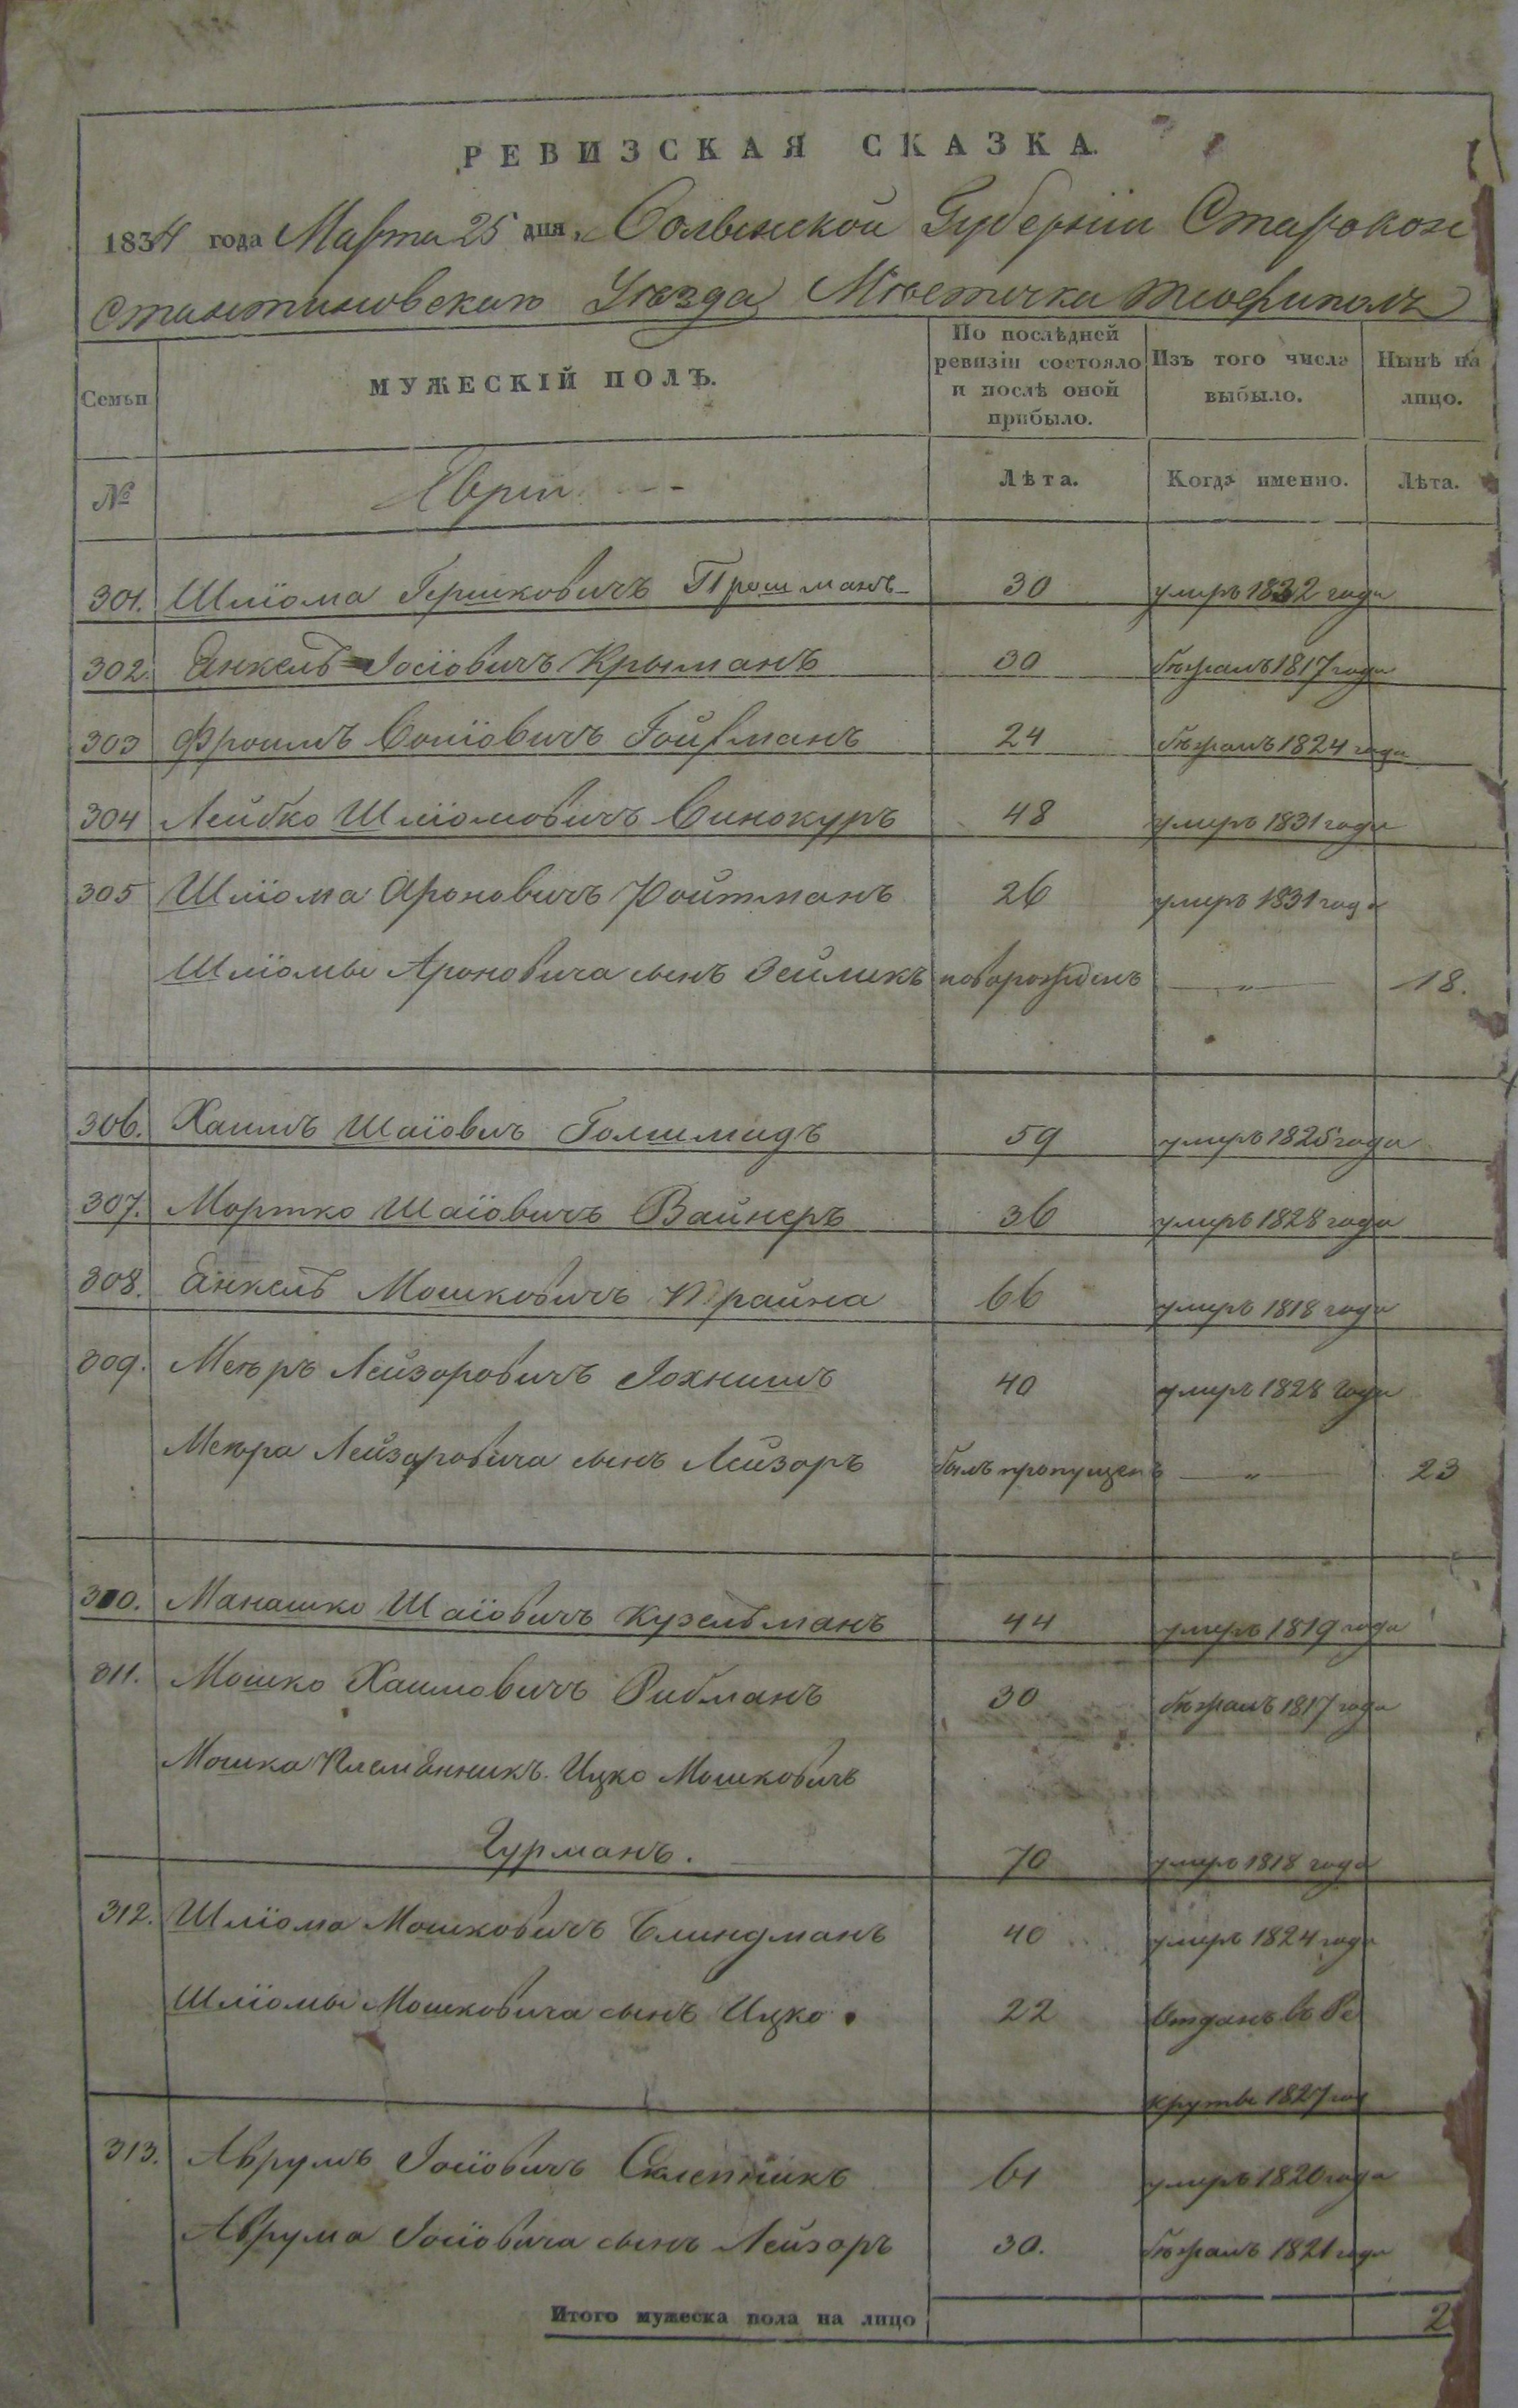 РЕВИЗСКАЯ СКАЗКА.
1834 года Марта 25 дня, Волынской Губернiи Старокон
стантиновскаго Уѣзда Мѣстечка Теофиполь
Семьи
МУЖЕСКІЙ ПОЛЪ.
По послѣдней ревизіи состояло и послѣ оной прибыло.
Изъ того числа выбыло.
Нынѣ на лицо.
№
Евреи
Лѣта.
Когда именно.
Лѣта.
301. Шліома Гершковичъ Трошманъ 30 умеръ 1832 года
302. Янкель Іосіовичъ Крыманъ 30 бѣжалъ 1817 года
303 Фроимъ Іосіовичъ Гойfманъ 24 бѣжалъ 1824 года
304 Лейбко Шліомовичъ Винокуръ 48 умеръ 1831 года
305 Шліома Ароновичъ Ройтманъ 26 умеръ 1831 года
Шліомы Ароновича сынъ Зейликъ новорожденъ — „ — 18.
306. Хаимъ Шаіовичъ Голшмидъ 59 умеръ 1825 года
307. Мортко Шаіовичъ Вайнеръ 36 умеръ 1828 года
308. Янкель Мошковичъ 66 умеръ 1818 года
309. Меѣръ Лейзоровичъ Іохнишъ 40 умеръ 1828 года
Меѣра Лейзоровича сынъ Лейзоръ былъ пропущенъ — „ — 23
310. Манашко Шаіовичъ Кузельманъ 44 умеръ 1819 года
311. Мошко Хаимовичъ Рибманъ 30 бѣжалъ 1817 года
Мошка племянникъ. Ицко Мошковичъ
Гурманъ. 70 умеръ 1818 года
312. Шліома Мошковичъ Блиндманъ 40 умеръ 1824 года
Шліомы Мошковича сынъ Ицко. 22 Отданъ въ Ре
круты 1827 год
313. Аврумъ Іосіовичъ Склепникъ 61 умеръ 1820 года
Аврума Іосіовича сынъ Лейзоръ 30. бѣжалъ 1821 года
Итого мужеска пола на лицо 2